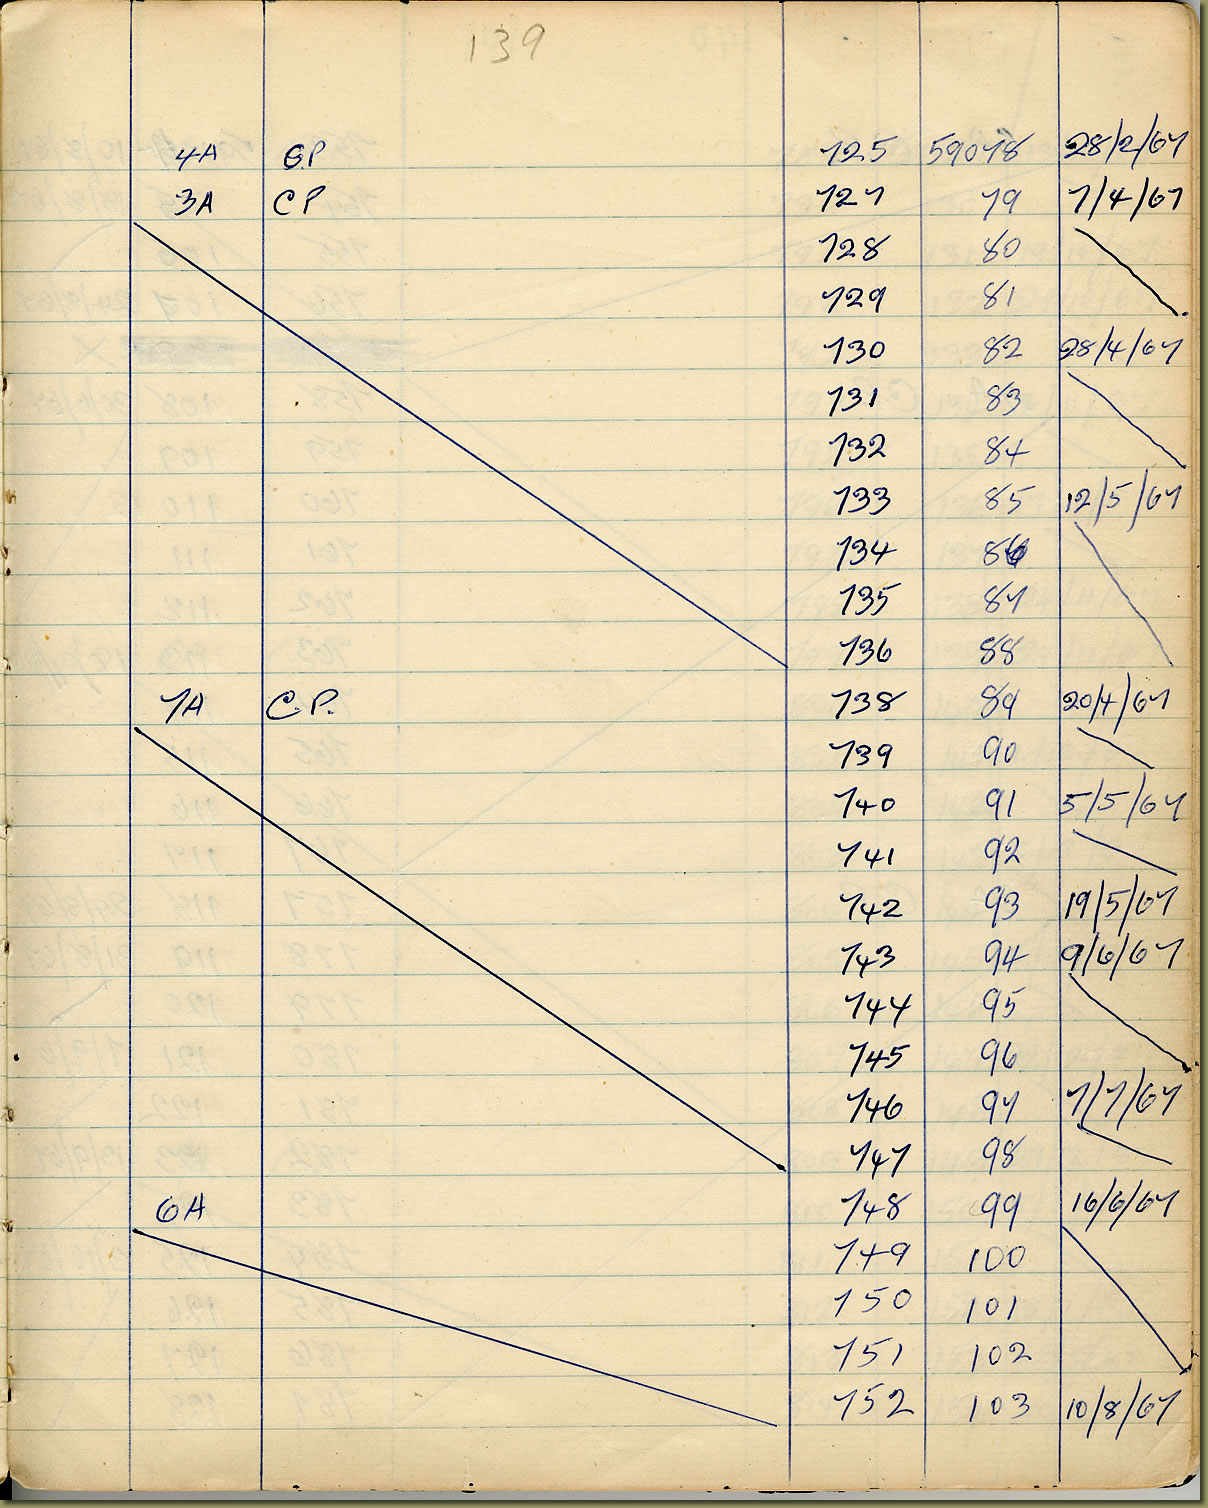 139
4A G.P 725 59078 28/2/67
3A C P 727 79 7/4/67
728 80
729 81
730 82 28/4/67
731 83
732 84
733 85 12/5/67
734 86
735 87
736 88
7A C.P. 738 89 20/4/67
739 90
740 91 5/5/67
741 92
742 93 19/5/67
743 94 9/6/67
744 95
745 96
746 97 7/7/67
747 98
6A 748 99 16/6/67
749 100
750 101
751 102
752 103 10/8/67